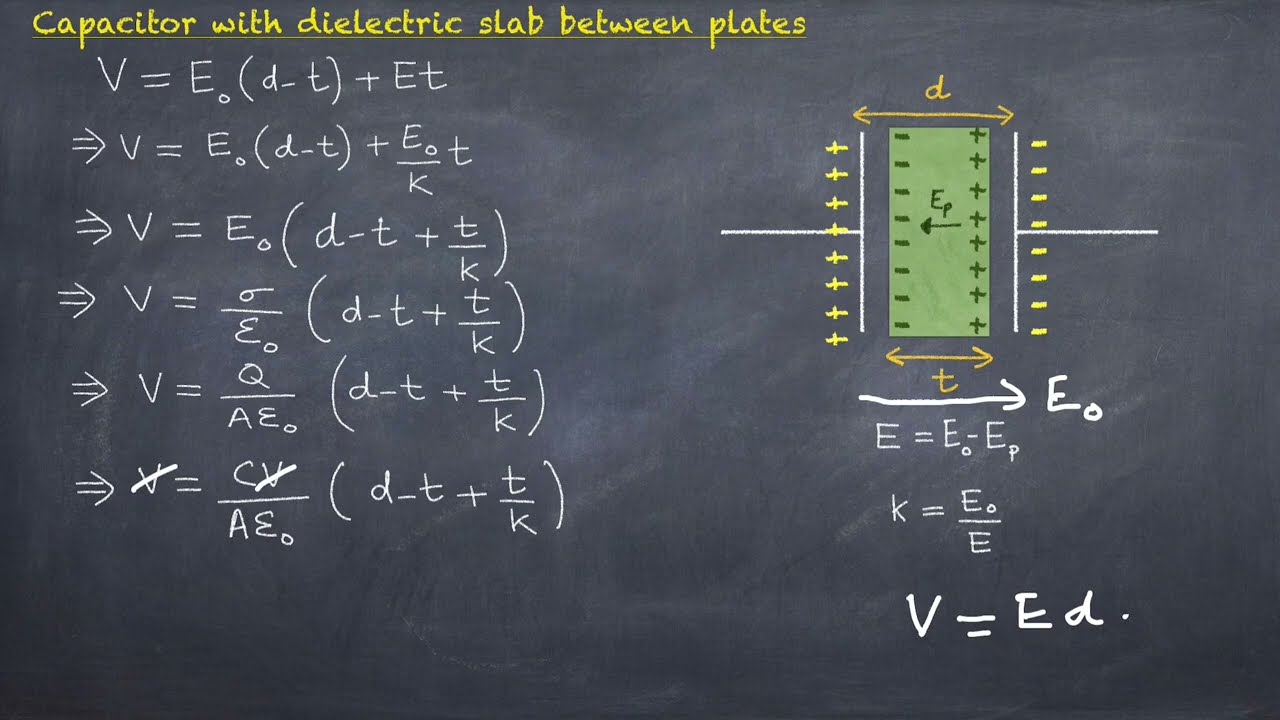 Capacitor with dielectric slab between plates
V = E₀(d-t) + Et
⇒ V = E₀(d-t) + E₀/K t
⇒ V = E₀(d-t + t/K)
⇒ V = σ/ε₀ (d-t + t/K)
⇒ V = Q/Aε₀ (d-t + t/K)
⇒ V = CV/Aε₀ (d-t + t/K)
d
+ - + -
+ - + -
+ - + -
+ - + -
+ - + -
+ - + -
+ - + -
+ - + -
Eₚ
t
E₀
E = E₀-Eₚ
K = E₀/E
V = Ed.